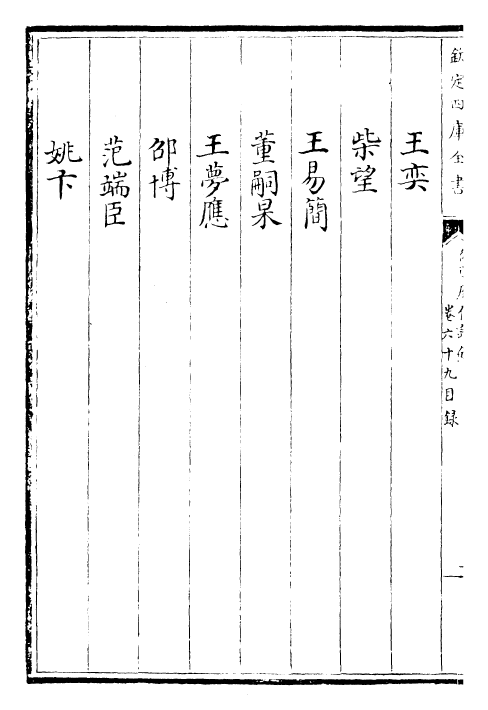 欽定四庫全書
卷六十九目録
二
王奕
柴望
王易簡
董嗣杲
王夢應
邵博
范端臣
姚卞